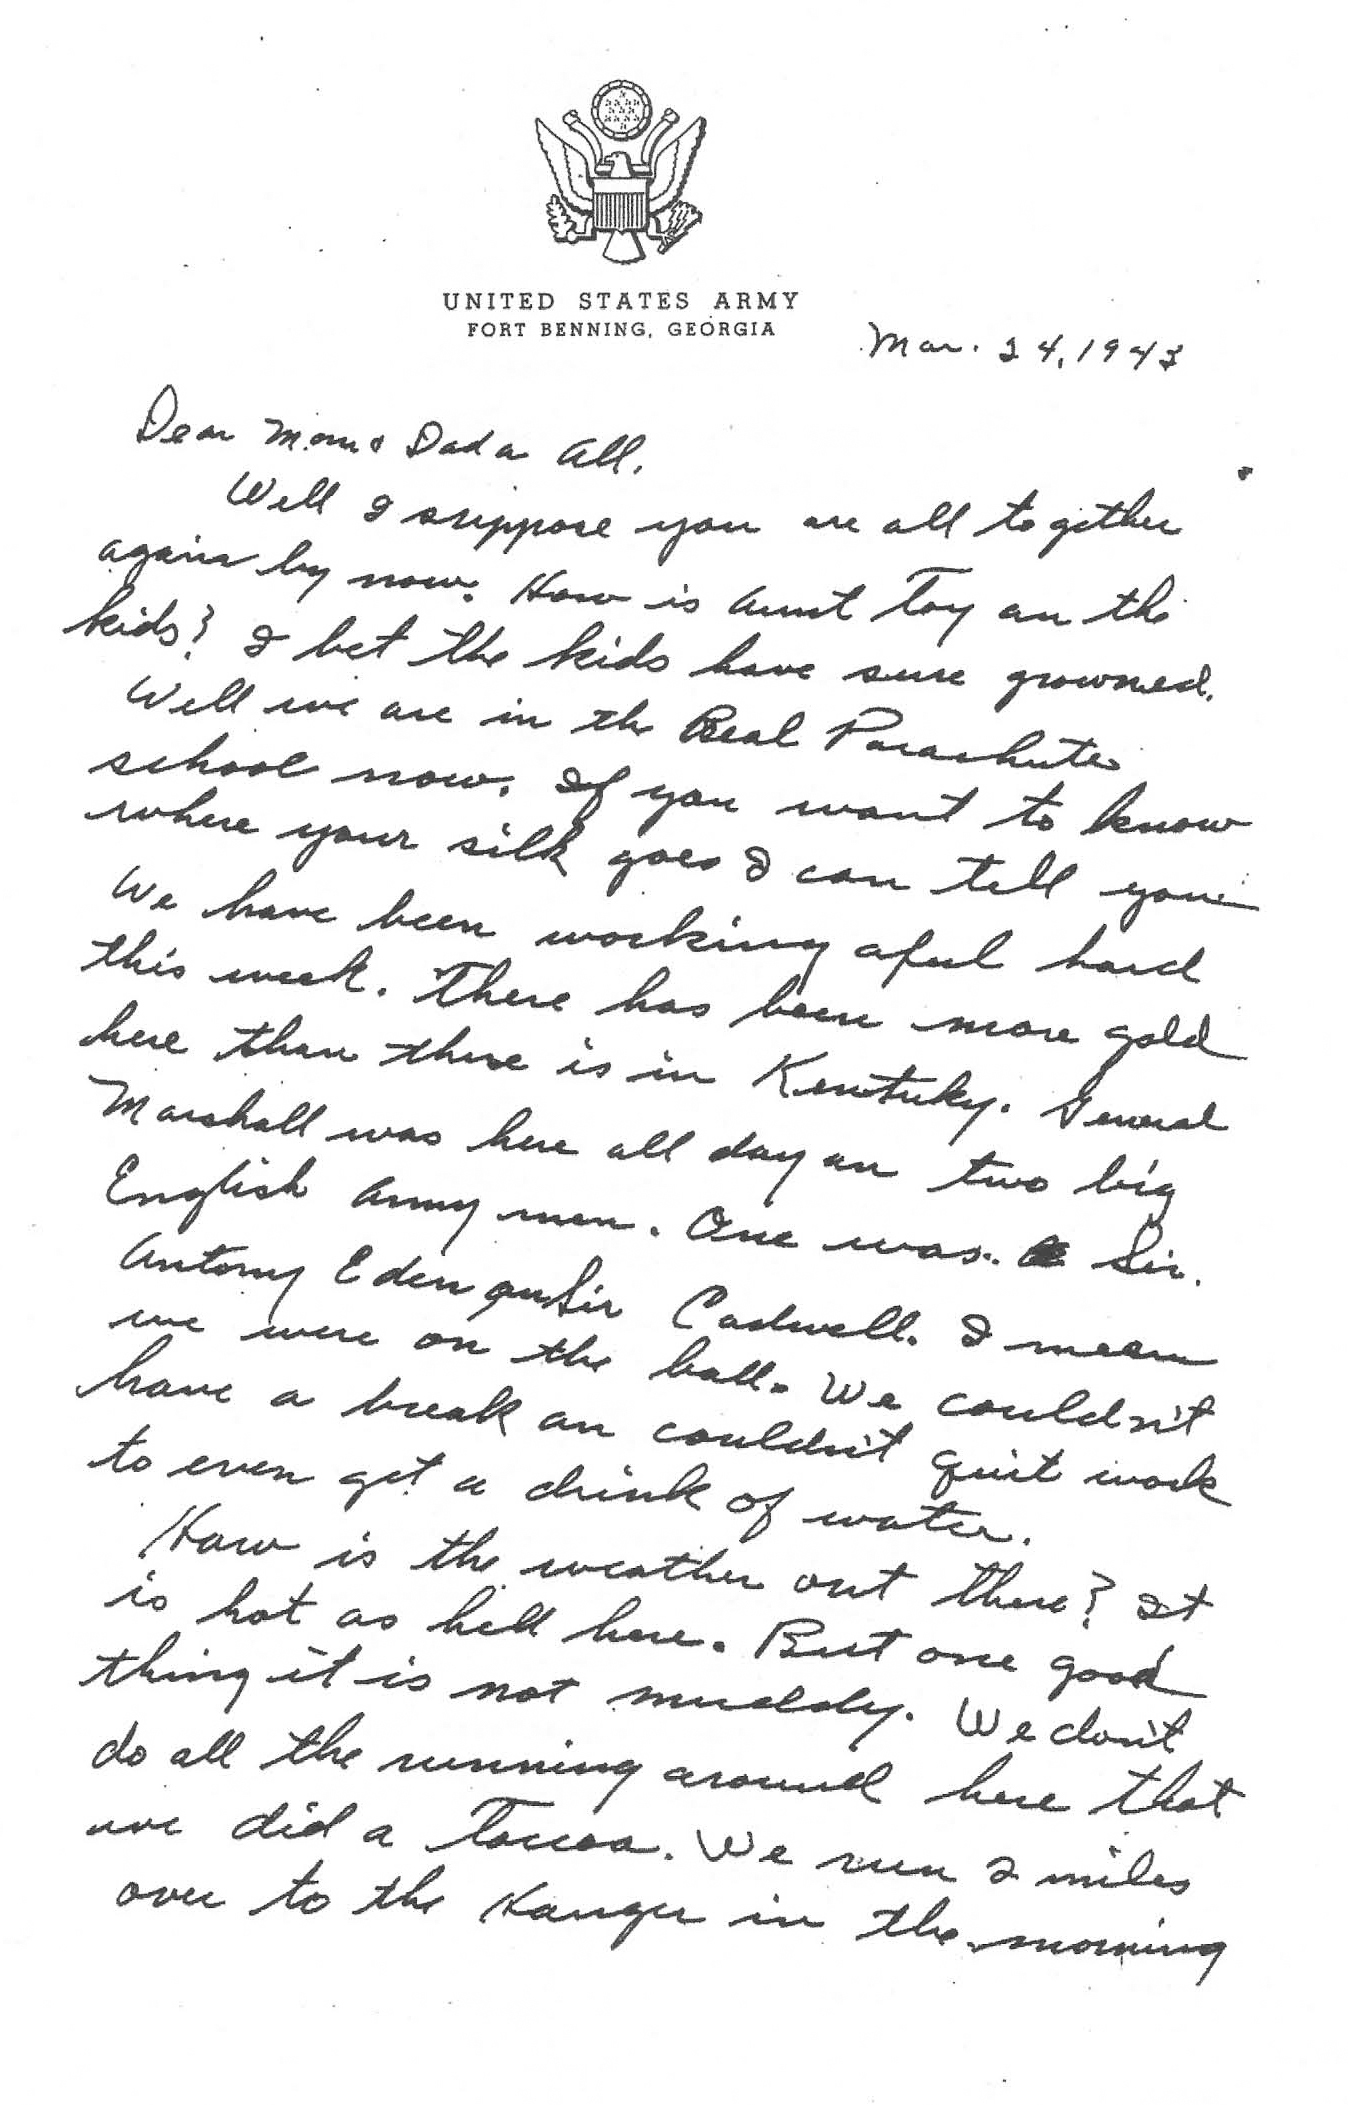 UNITED STATES ARMY
FORT BENNING, GEORGIA
Mar. 24, 1943
Dear Mom & Dad an All,
Well I suppose you are all together
again by now. How is Aunt Toy an the
kids? I bet the kids have sure growned.
Well we are in the Real Parachute
school now. If you want to know
where your silk goes I can tell you
We have been working aful hard
this week. There has been more gold
here than there is in Kentuky. General
Marshall was here all day an two big
English Army men. One was Sir.
Antony Eden an Sir Cadwell. I mean
we were on the ball. We couldn't
have a break an couldn't quit work
to even get a drink of water.
How is the weather out there? It
is hot as hell here. But one good
thing it is not muddy. We don't
do all the running around here that
we did a Toccoa. We run 2 miles
over to the Hanger in the morning